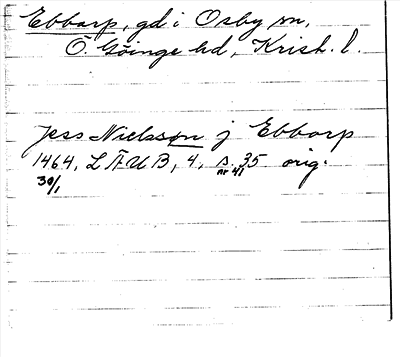 Ebbarp, gd i Osby sn,
Ö. Göinge hd, Krist. l.
Jess Nielsson j Ebbarp
1464, LÄUB, 4, s. 35 orig.
30/1 nr 41